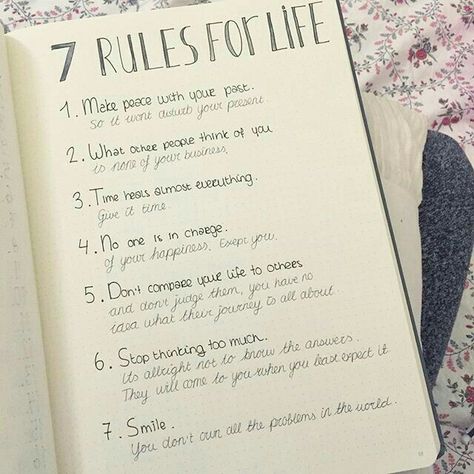 7 RULES FOR LIFE
1. Make peace with your past.
So it wont disturb your present.
2. What other people think of you
is none of your business.
3. Time heals almost everything.
Give it time.
4. No one is in charge.
of your happiness. Exept you.
5. Don't compare your life to others
and don't judge them, you have no
idea what their journey to all about.
6. Stop thinking too much.
Its allright not to know the answers.
They will come to you when you least expect it
7. Smile.
You don't own all the problems in the world.